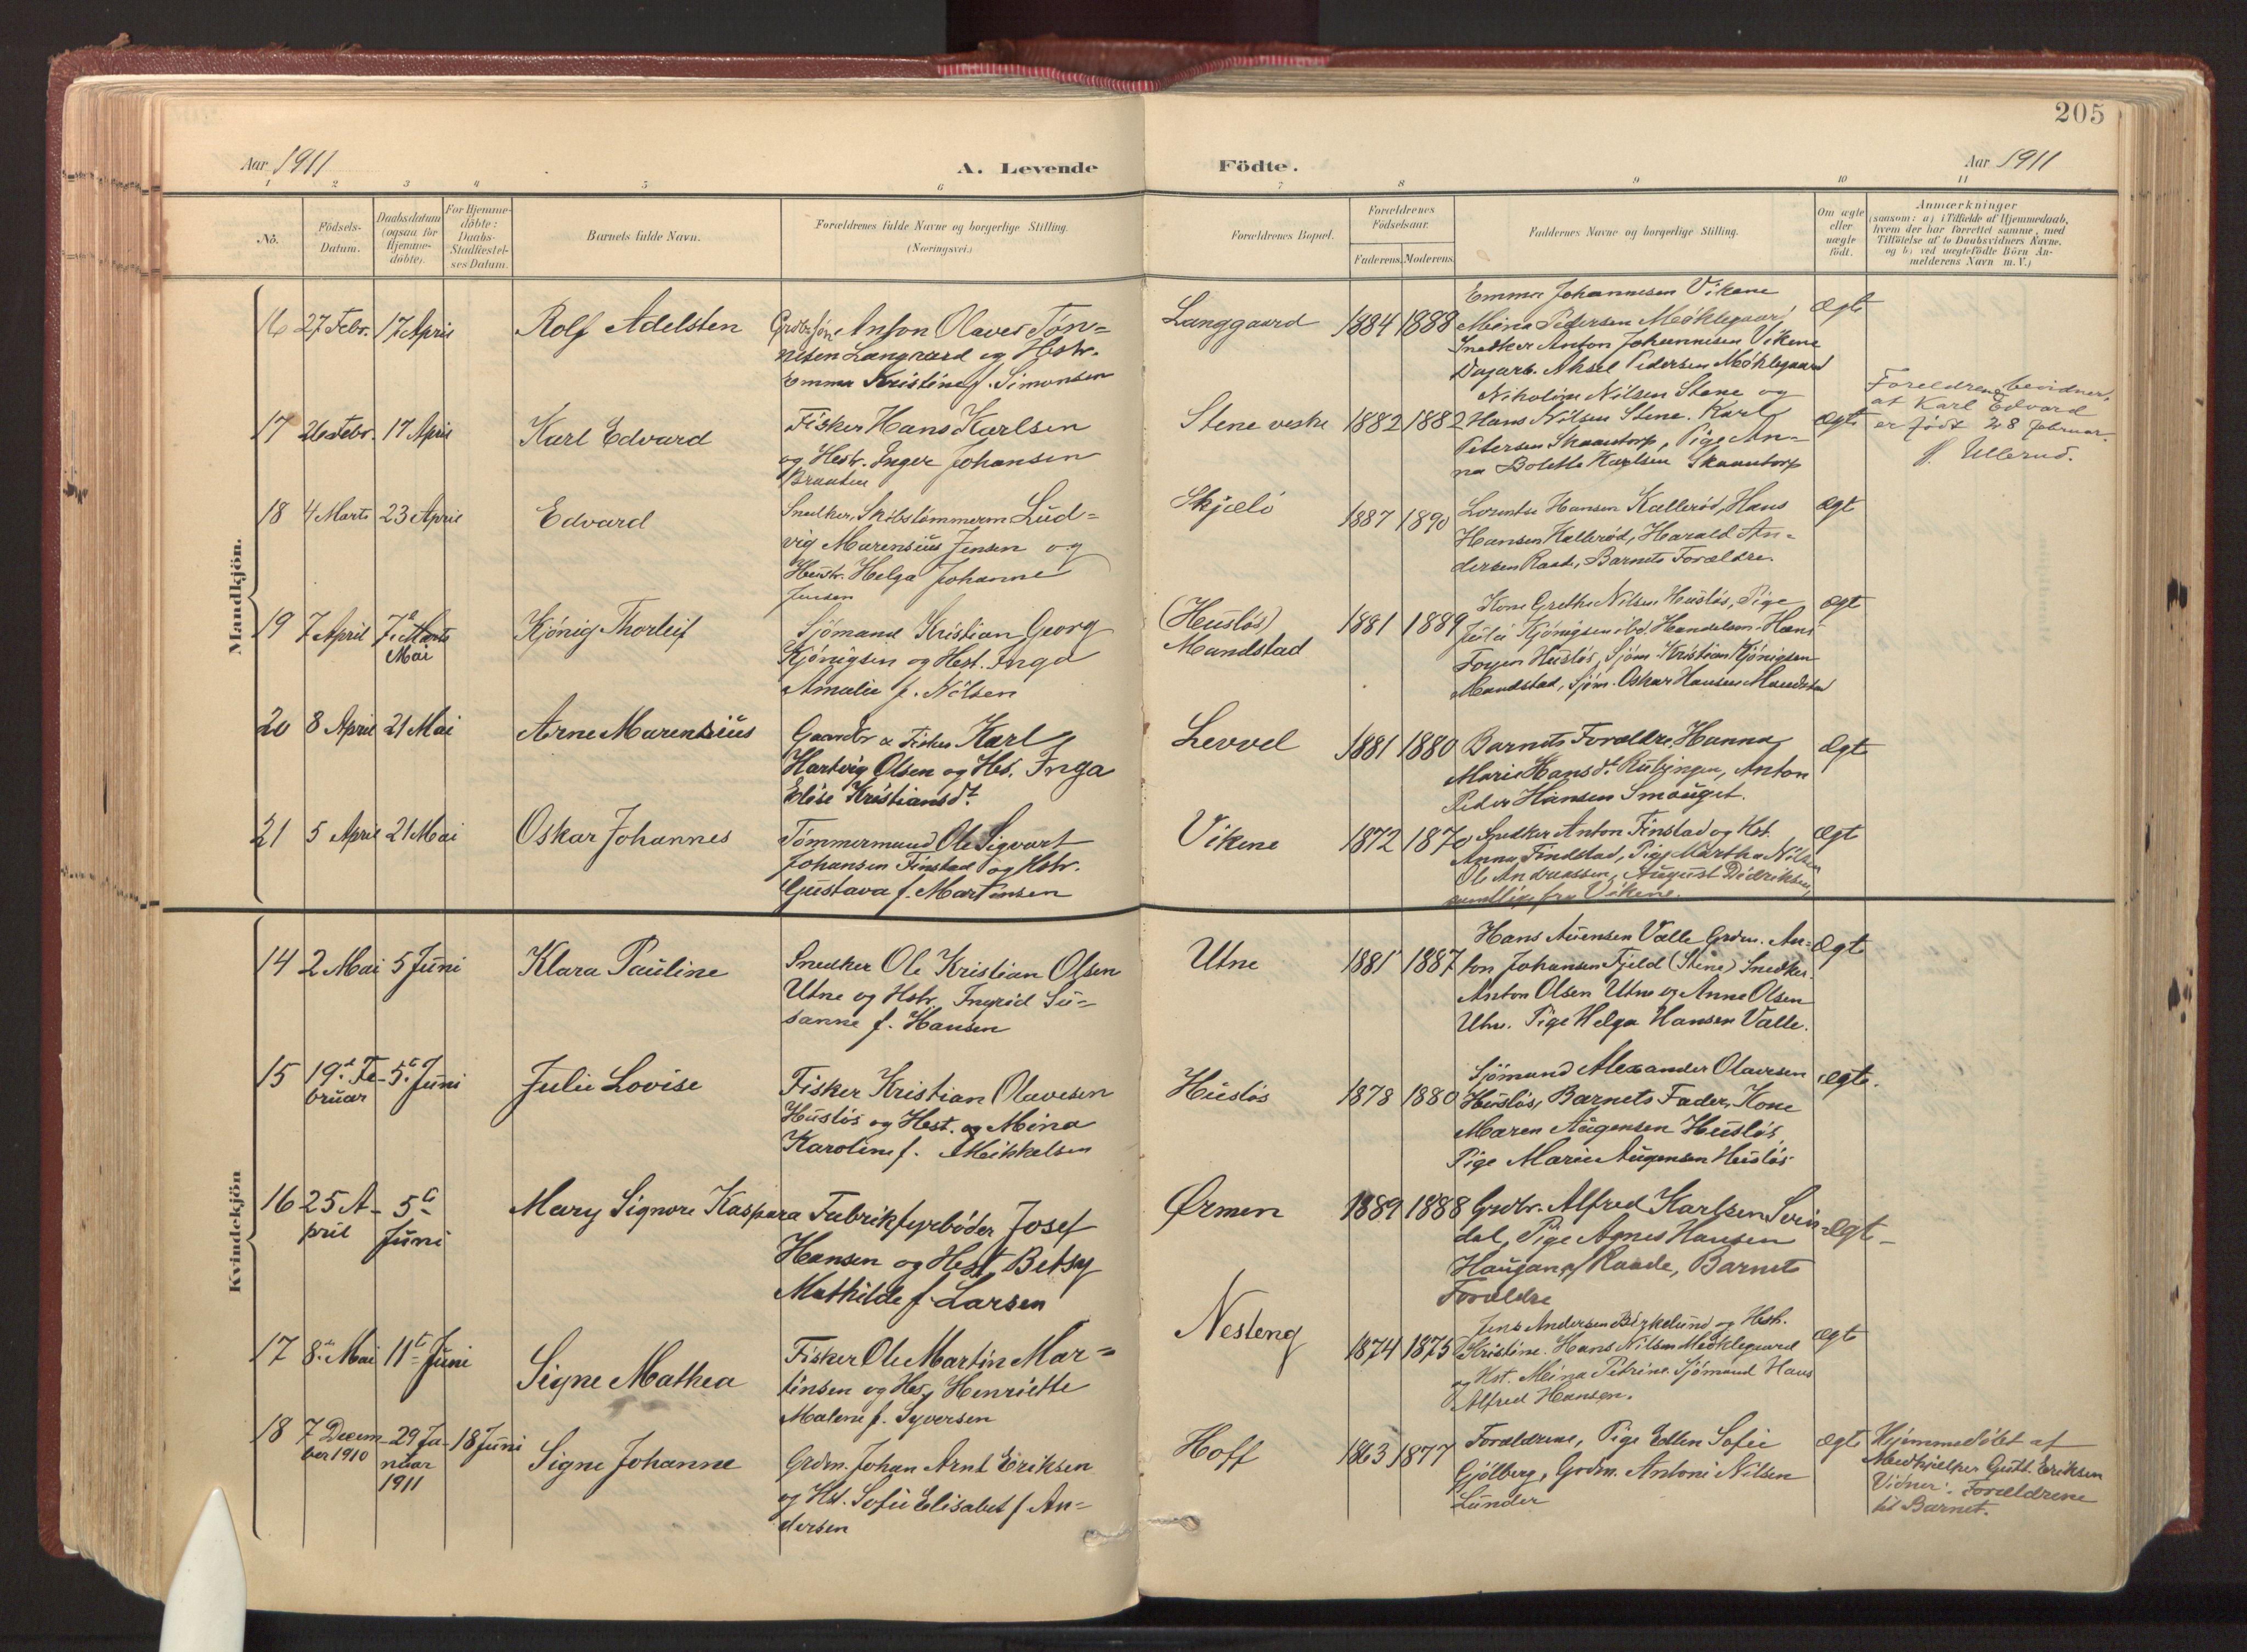 205
Aar 1911
A. Levende
Födte.
Aar 1911
1 2 3 4 5 6 7 8 9 10 11
No.
Födsels-
Datum.
Daabsdatum
(ogsaa for
Hjemme-
döbte).
For Hjemme-
döbte:
Daabs-
Stadfæstel-
ses Datum.
Barnets fulde Navn.
Forældrenes fulde Navne og borgerlige Stilling.
(Næringsvei.)
Forældrenes Bopæl.
Forældrenes
Födselsaar.
Faderens. Moderens.
Faddernes Navne og borgerlige Stilling.
Om ægte
eller
uægte
födt.
Anmærkninger
(saasom: a) i Tilfælde af Hjemmedaab,
hvem der har forrettet samme, med
Tilföielse af to Daabsvidners Navne.
og b) ved uægtefödte Börn An-
melderens Navn m. V.)
Mandkjön.
16 27 Febr. 17 April
Rolf Adelsten
Anton Olaves Tön-
nesen Langgaard og Hstr.
Emma Kristine f. Simonsen
Langgaard
1884 1888
Emma Johannesen Vikene
Mina Pedersen Möklegaard
Snedker Anton Johannesen Vikene
Dagarb. Aksel Pedersen Möklegaard
Ægte
17 26 Febr. 17 April
Karl Edvard
Fisker Hans Karlsen
og Hestr. Inger Johansen
Stene vestre
1882 1882
Nikoline Nilsen Stene og
Hans Nilsen Stene. Karl
Petersen Skaantorp, Pige An-
na Bolette Karlsen Skaantorp
Ægte
Foreldrene bevidner,
at Karl Edvard
er födt 28 februar.
Ullerud.
18 4 Marts 23 April
Edvard
Snedker, Skibstömmerm Lud-
vig Marensius Jensen og
Hustr. Helga Johanne
Jensen
Skjælö
1887 1890
Lorentse Hansen Kallerød, Hans
Hansen Kallerød, Harald An-
dersen Raade, Barnets Forældre.
Ægt
19 7 April 7de Marts
Mai
Kjönig Thorleif
Sjömand Kristian Georg
Kjönigsen og Hest. Inga
Amalie f. Nilsen
(Huslös)
Mandstad
1881 1889
Kone Grethe Nilsen Huslös, Pige
Julie Kjönigsen ibd. Handelsm. Hans
Foyen Huslös, Sjöm. Kristian Kjönigsen
Mandstad, Sjöm. Oskar Hansen Mandstad
Ægt
20 8 April 21 Mai
Arne Marensius
Gaardbr & Fisker Karl
Hartvig Olsen og Hs. Inga
Elise Kristiansdt.
Levvel
1881 1880
Barnets Forældre, Hanna
Marie Hansdt. Anton
Peder Hansen Smauget.
Ægte
21 5 April 21 Mai
Oskar Johannes
Tömmermand Ole Sigvart
Johansen Finstad og Hstr.
Gustava f. Martinsen
Vikene
1872 1870
Snedker Anton Finstad og Hst.
Anna Findstad, Pige Martha Nilsen
Ole Andreassen, August Didriksen,
samtlige fra Vikene.
Ægte
Kvindekjön
14 2 Mai 5 Juni
Klara Pauline
Snedker Ole Kristian Olsen
Utne og Hstr. Ingrid Su-
sanne f. Hansen
Utne
1881 1887
Hans Valle Grdm. An-
ton Johansen Fjeld (Stene) Snedker
Anton Olsen Utne og Anne Olsen
Utne. Pige Helga Hansen Valle.
Ægte
15 19de Fe-
bruar 5te Juni
Julie Lovise
Fisker Kristian Olavesen
Huslös og Hest. og Mina
Karoline f. Mikkelsen
Huslös
1878 1880
Sjömand Alexander Olavesen
Huslös, Barnets Fader, Kone
Maren Augensen Huslös,
Pige Marie Augensen Huslös
Ægte.
16 25 A-
pril 5te
Juni
Mary Signore Kaspara
Fabrikfyrböder Josef
Hansen og Hest. Betsy
Mathilde f. Larsen
Ørmen
1889 1888
Grdbr. Alfred Karlsen Svin
dal, Pige Agnes Hansen
Haugan Raade, Barnets
Forældre
Ægte
17 8de Mai 11te Juni
Signe Mathea
Fisker Ole Martin Mar-
tinsen og Hes. Henriette
Malene f. Syversen
Nesleng
1874 1875
Jens Andersen Birkelund og Hstr.
Kristine. Hans Nilsen Möklegaard
og Hst. Mina Petrine Sjömand Hans
Alfred Hansen.
Ægte
18 7 Decem-
ber 1910 29 Ja-
nuar
1911 18 Juni
Signe Johanne
Grdm. Johan Arnt Eriksen
og Hst. Sofie Elisabet f An-
dersen
Hoff
1863 1877
Forældrene, Pige Ellen Sofie
Gjölberg, Grdm. Antoni Nilsen
Lunder
Ægte
Hjemmedöbt af
Medhjelper Gutt. Eriksen
Vidner: Forældrene
til Barnet.